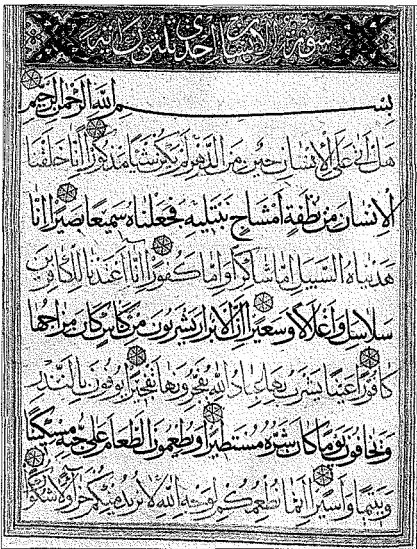 سورة الانسان احدى وثلثون اية
بسم الله الرحمن الرحيم
هل اتى على الانسان حين من الدهر لم يكن شيئا مذكورا انا خلقنا
الانسان من نطفة امشاج نبتليه فجعلناه سميعا بصيرا انا
هديناه السبيل اما شاكرا واما كفورا انا اعتدنا للكافرين
سلاسل واغلالا وسعيرا ان الابرار يشربون من كاس كان مزاجها
كافورا عينا يشرب بها عباد الله يفجرونها تفجيرا يوفون بالنذر
ويخافون يوما كان شره مستطيرا ويطعمون الطعام على حبه مسكينا
ويتيما واسيرا انما نطعمكم لوجه الله لا نريد منكم جزاء ولا شكورا